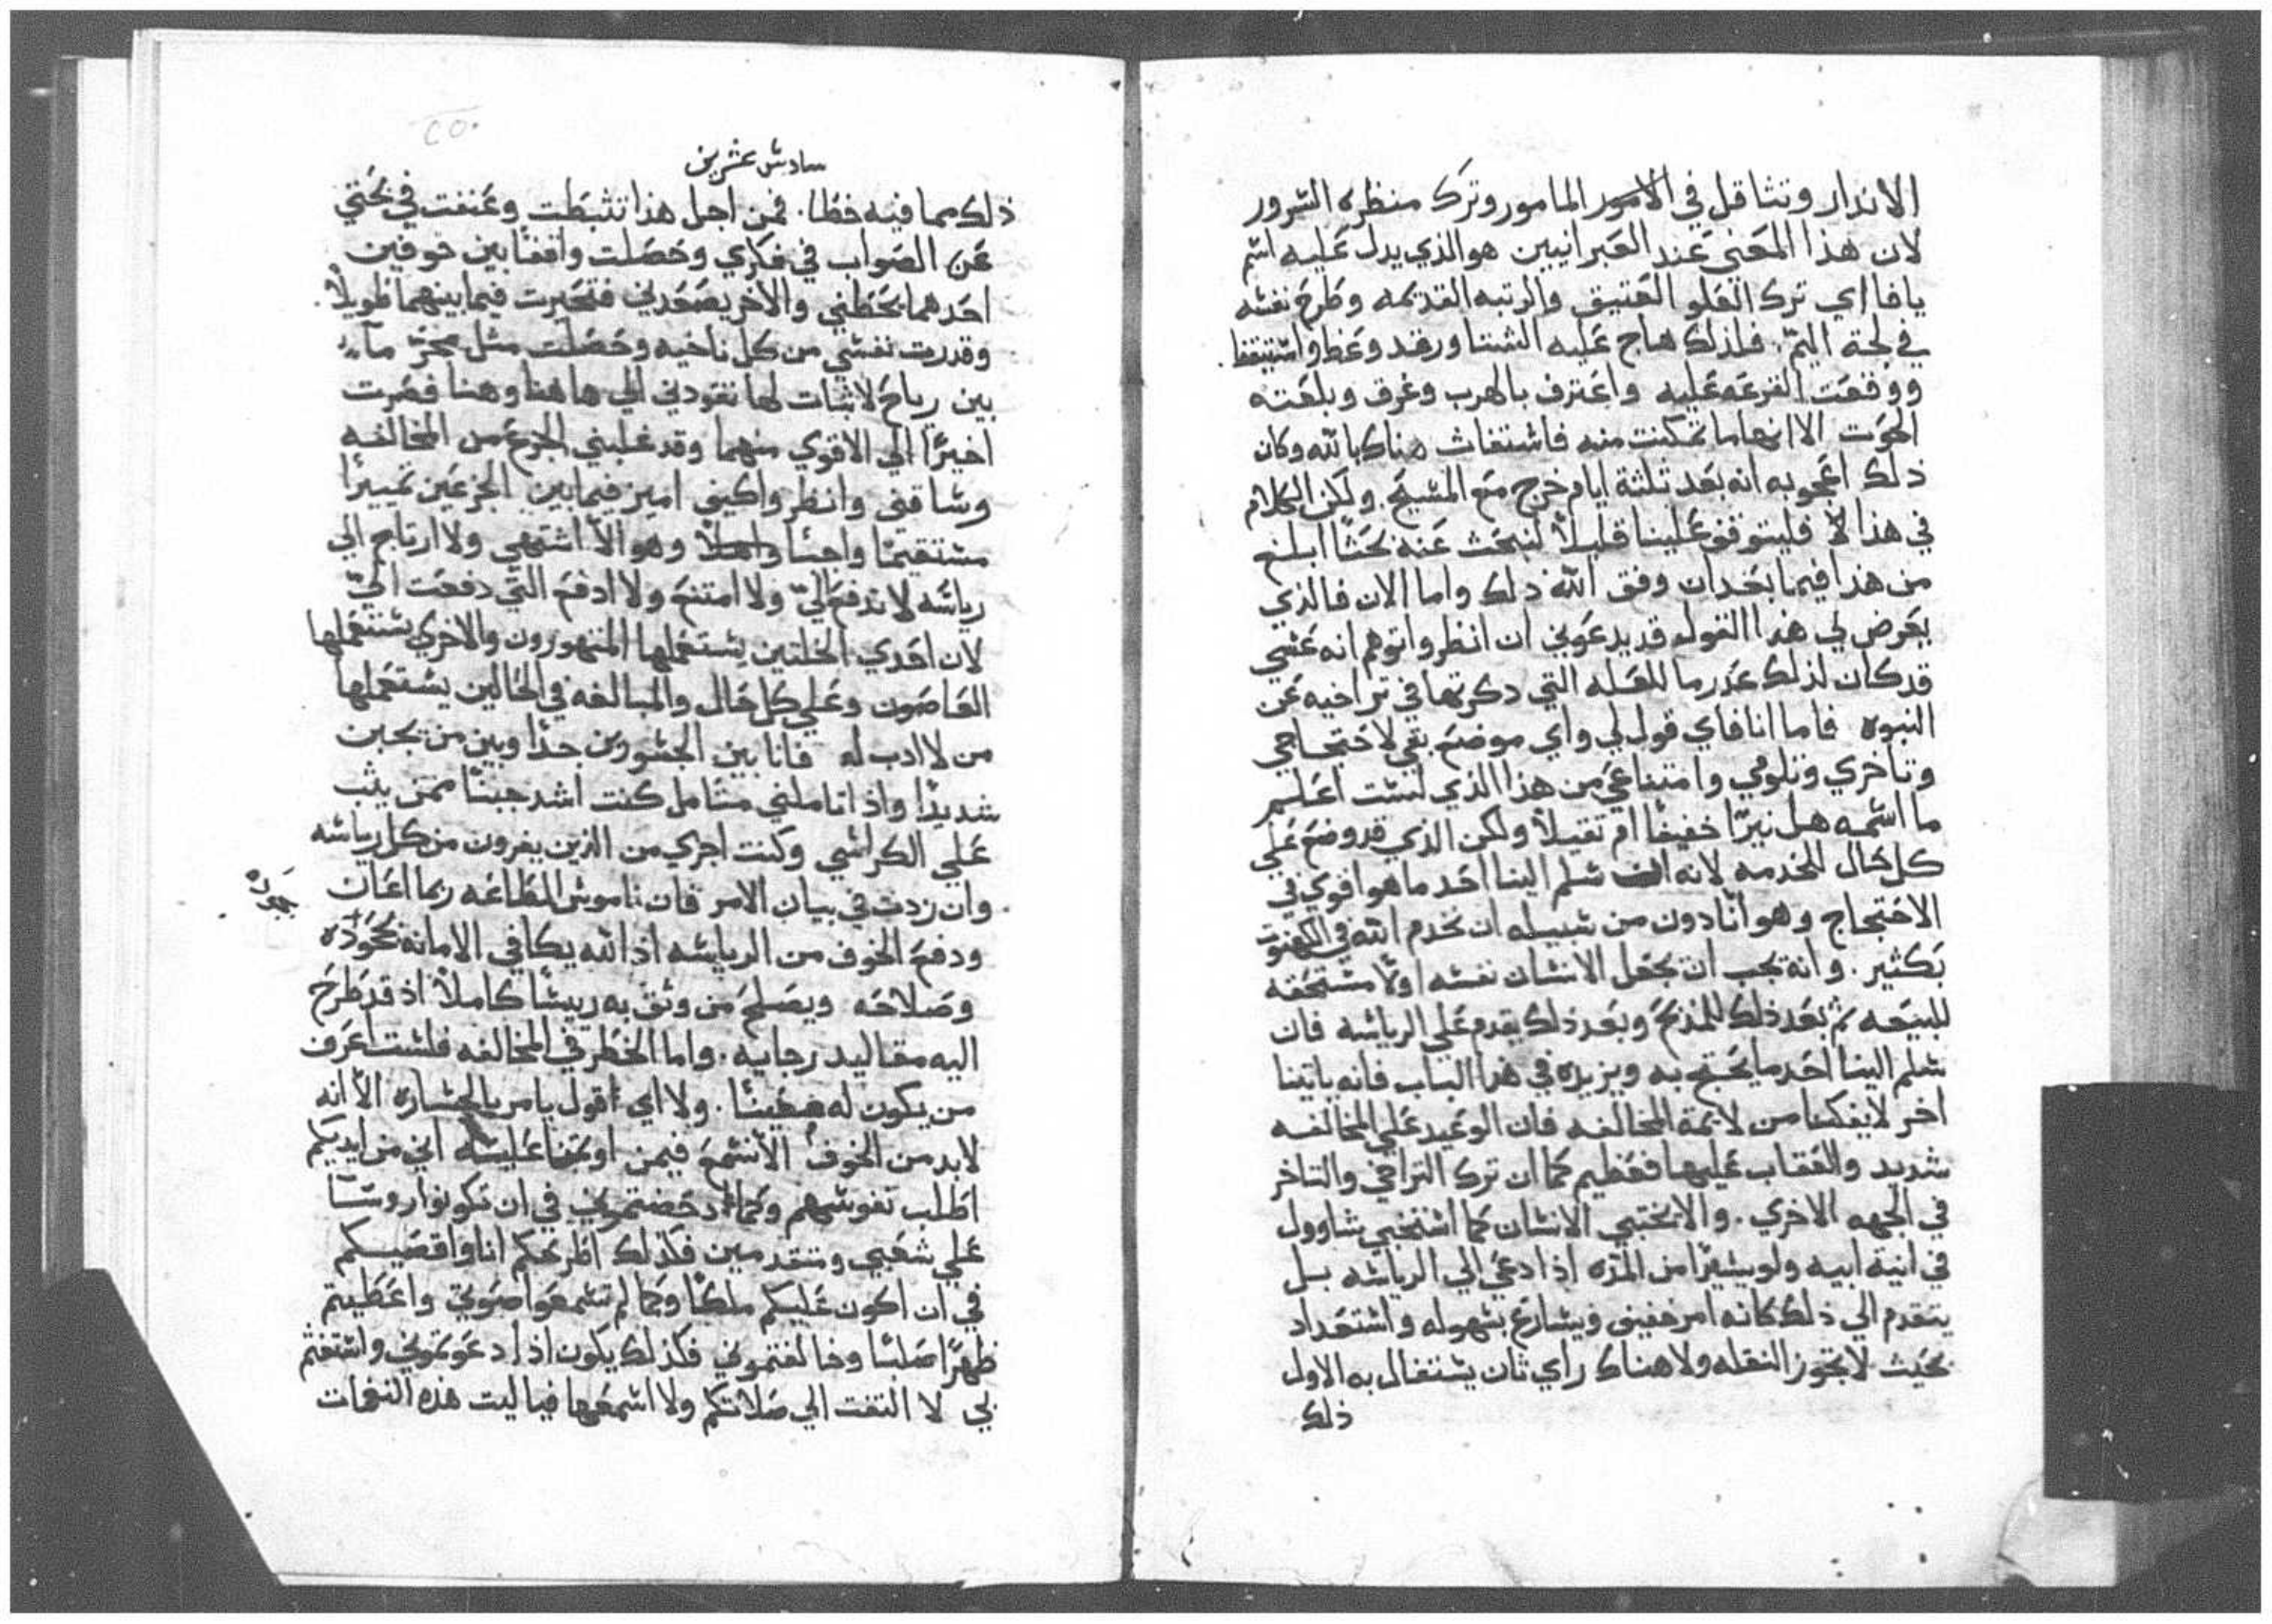 الاندار وتثاقل في الامور المامور وترك منظره السرور
لان هذا المعني عند العبرانيين هو الذي يدل عليه اسم
يافا اي ترك العلو العتيق والرتبه القديمه وطرح نفسه
في لجة اليم. فلذلك هاج عليه الشتا ورقد وغط واستيقظ
ووقعت القرعه عليه واعترف بالهرب وغرق وبلعته
الحوت الا انها ما تمكنت منه فاستغاث هناك بالله وكان
ذلك اعجوبه انه بعد ثلثة ايام خرج مع المسيح. ولكن الكلام
في هذا فليتوقف علينا قليلاً لنبحث عنه بحثاً ابلغ
من هذا فيما بعد ان وفق الله ذلك واما الان فالذي
يعرض لي هذا القول قد يدعوني ان انظر واتوهم انه عسي
قد كان لذلك عذر ما للعله التي دكرتها في تراخيه عن
النبوه فاما انا فاي قول لي واي موضع بقي لاحتجاجي
وتاخري وتلومي وامتناعي من هذا الذي لست اعلم
ما اسمه هل نيرًا خفيفًا ام ثقيلاً ولكن الذي قد وضع علي
كل حال للخدمه لانه سلم الينا احد ما هو اقوي في
الاحتجاج وهو انّا دون من سبيله ان يخدم الله في الكهنوت
بكثير. وانه يجب ان يجعل الانسان نفسه اولاً مستحقه
للبيعه ثم بعد ذلك للمذبح وبعد ذلك يقدم علي الرياسه فان
سلم الينا احد ما يحتج به ويزيده في هذا الباب فانه ياتينا
اخر لا يفكنا من لايمة المخالفه فان الوعيد علي المخالفه
شديد والعقاب عليها فعظيم كما ان ترك التراخي والتاخر
في الجهه الاخري. والا يختبي الانسان كما استخبي شاوول
في انية ابيه ولو يسيرًا من المره اذا دعي الي الرياسه بل
يتقدم الي ذلك كانه امر خفيف ويسارع بسهوله واستعداد
بحيث لا تجوز النقله ولا هناك راي ثان يشتغال به الاول
ذلك
سادس عشرين
ذلك مما فيه خطا. فمن اجل هذا تثبطت وعنفت في بحثي
عن الصواب في فكري وحصلت واقفًا بين خوفين
احدهما يحطني والاخر يصعدني فتحيرت فيما بينهما طويلاً.
وقدرت نفسي من كل ناحيه وحصلت مثل مجرّ مآء
بين رياح لا ثبات لها تقودني الي هاهنا وهنا فصرت
اخيرًا الي الاقوي منهما وقد غلبني الجزع من المخالفه
وساقني وانظروا كيف اميز فيما بين الجزعين تمييزًا
مستقيمًا واجبًا وهو الاّ اشتهي ولا ارتاح الي
رياسه لا تدفع اليّ ولا امتنع ولا ادفع التي دفعت اليّ
لان احدي الخلتين يستعملها المتهورون والاخري يستعملها
العاصون وعلي كل حال والمبالغه في الحالين يستعملها
من لا ادب له فانا بين الجسورين جدًا وبين من يجبن
شديدًا واذا تاملني متامل كنت اشد جبنًا ممن يثب
علي الكراسي وكنت اجري من الذين يفرون من كل رياسه
وان زدت في بيان الامر فان ناموس الطاعه ربما اعان
ودفع الخوف من الرياسه اذ الله يكافي الامانه بجوده
بجوده
وصلاحه ويصلح من وثق به رييسًا كاملاً اذ قد طرح
اليه مقاليد رجاييه. واما الخطر في المخالفه فلست اعرف
من يكون له معينًا. ولا اي قول يامر بالجساره الا انه
لابد من الخوف الا نسمع فيمن اوتمنا عليه اني من ايديكم
اطلب نفوسهم وكما دحضتموني في ان تكونوا روسًا
علي شعبي ومتقدمين فكذلك اطرحكم انا واقصيكم
في ان اكون عليكم ملكًا وكما لم تسمعوا صوتي واعطيتم
ظهرًا صلبًا وخالفتموني فكذلك يكون اذا دعوتموني واستغثتم
بي لا التفت الي صلاتكم ولا اسمعها فيا ليت هذه النغمات